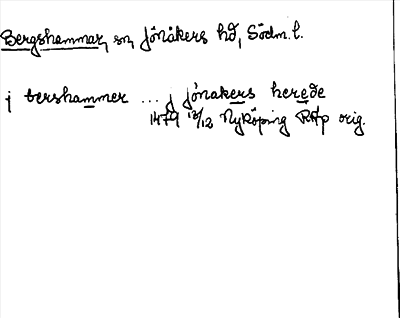 Bergshammar, sn, Jönåkers hd, Södm. l.
j bershammer ... j jönakers herede
1479 12/12 Nyköping RAp orig.